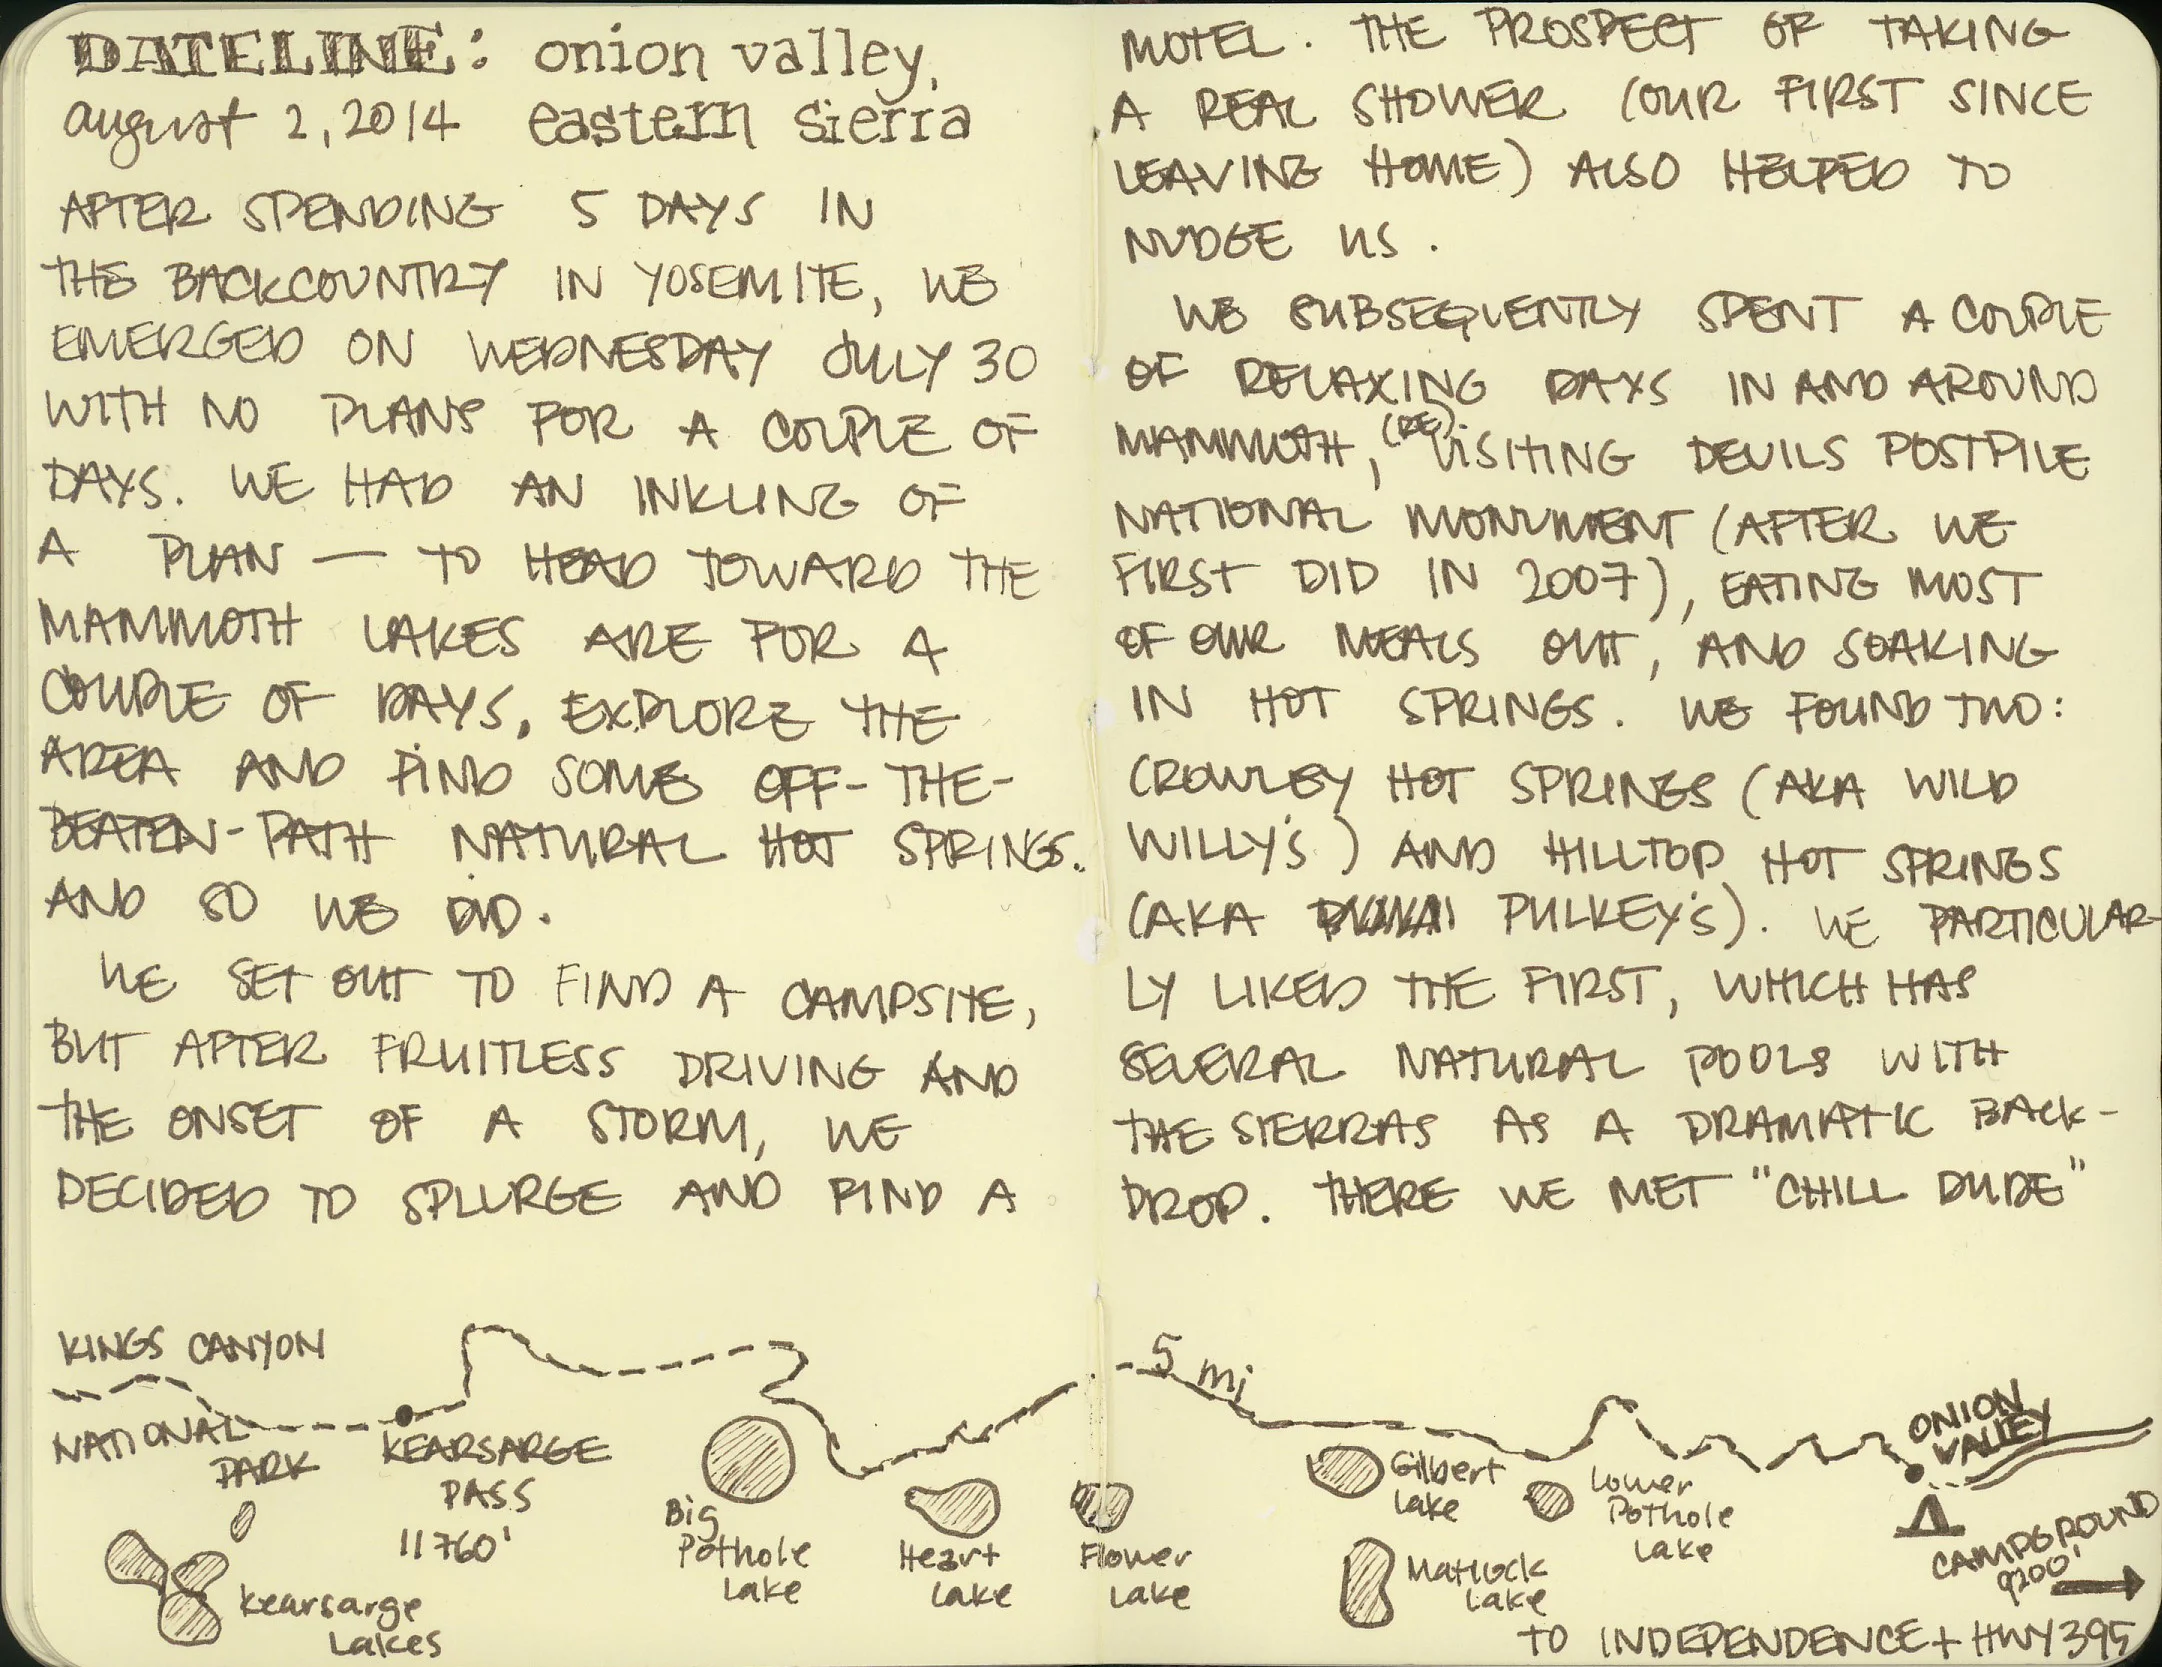 DATELINE: onion valley,
august 2, 2014 eastern sierra
AFTER SPENDING 5 DAYS IN
THE BACKCOUNTRY IN YOSEMITE, WE
EMERGED ON WEDNESDAY JULY 30
WITH NO PLANS FOR A COUPLE OF
DAYS. WE HAD AN INKLING OF
A PLAN — TO HEAD TOWARD THE
MAMMOTH LAKES ARE FOR A
COUPLE OF DAYS, EXPLORE THE
AREA AND FIND SOME OFF-THE-
BEATEN-PATH NATURAL HOT SPRINGS.
AND SO WE DID.
WE SET OUT TO FIND A CAMPSITE,
BUT AFTER FRUITLESS DRIVING AND
THE ONSET OF A STORM, WE
DECIDED TO SPLURGE AND FIND A
MOTEL. THE PROSPECT OF TAKING
A REAL SHOWER (OUR FIRST SINCE
LEAVING HOME) ALSO HELPED TO
NUDGE US.
WE SUBSEQUENTLY SPENT A COUPLE
OF RELAXING DAYS IN AND AROUND
MAMMOTH, (RE)VISITING DEVILS POSTPILE
NATIONAL MONUMENT (AFTER WE
FIRST DID IN 2007), EATING MOST
OF OUR MEALS OUT, AND SOAKING
IN HOT SPRINGS. WE FOUND TWO:
CROWLEY HOT SPRINGS (AKA WILD
WILLY'S) AND HILLTOP HOT SPRINGS
(AKA PULKEY'S). WE PARTICULAR-
LY LIKED THE FIRST, WHICH HAS
SEVERAL NATURAL POOLS WITH
THE SIERRAS AS A DRAMATIC BACK-
DROP. THERE WE MET "CHILL DUDE"
KINGS CANYON
NATIONAL
PARK
KEARSARGE
PASS
11760'
Kearsarge
Lakes
Big
Pothole
Lake
Heart
Lake
Flower
Lake
5 mi
Gilbert
Lake
Matlock
Lake
Lower
Pothole
Lake
ONION
VALLEY
CAMPGROUND
9200'
TO INDEPENDENCE + HWY 395